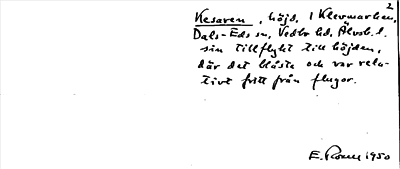 2
Kesaren, höjd, i Klevmarken,
Dals-Eds sn, Vedbo hd, Älvsb. l.
sin tillflykt till höjden,
där det blåste och var rela-
tivt fritt från flugor.
E. 1950